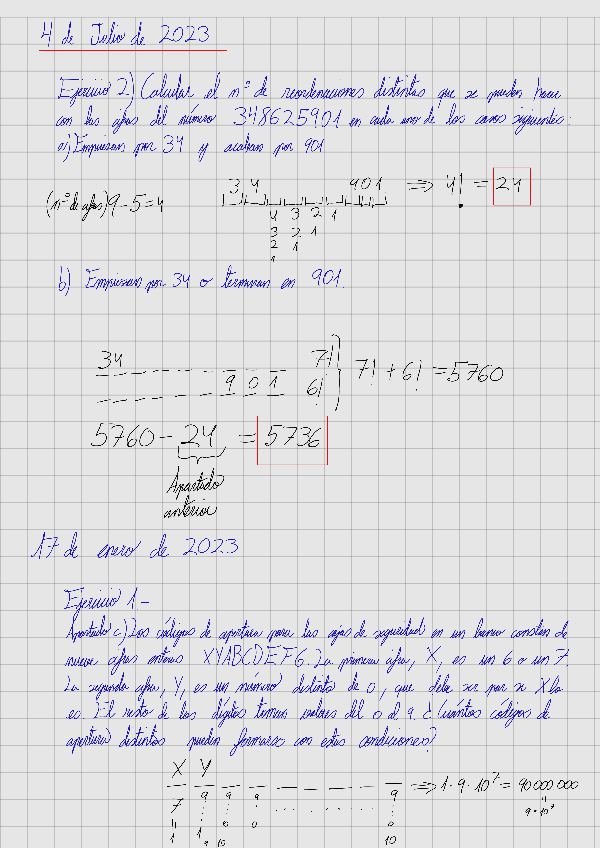 4 de Julio de 2023
Ejercicio 2) Calcular el nº de reordenaciones distintas que se pueden hacer
con las cifras del número 348625901 en cada uno de los casos siguientes.
a) Empiezan por 34 y acaban por 901
(nº de cifras) 9-5=4
3 4 901 => 4! = 24
4 3 2 1
3 2 1
2 1
1
b) Empiezan por 34 o terminan en 901.
34 7!
9 0 1 6!
7! + 6! = 5760
5760 - 24 = 5736
Apartado
anterior
17 de enero de 2023
Ejercicio 1-
Apartado c) Los códigos de apertura para las cajas de seguridad en un banco constan de
nueve cifras enteras XYABCDEFG. La primera cifra, X, es un 6 o un 7
La segunda cifra, Y, es un número distinto de 0, que debe ser par si X lo
es. El resto de los dígitos toman valores del 0 al 9. ¿Cuántos códigos de
apertura distintos pueden formarse con estas condiciones?
X Y
=> 1·9·10⁷ = 90 000 000
7 9 9 9 ........ 9
9·10⁷
1 0 0 0
1 9 10 10